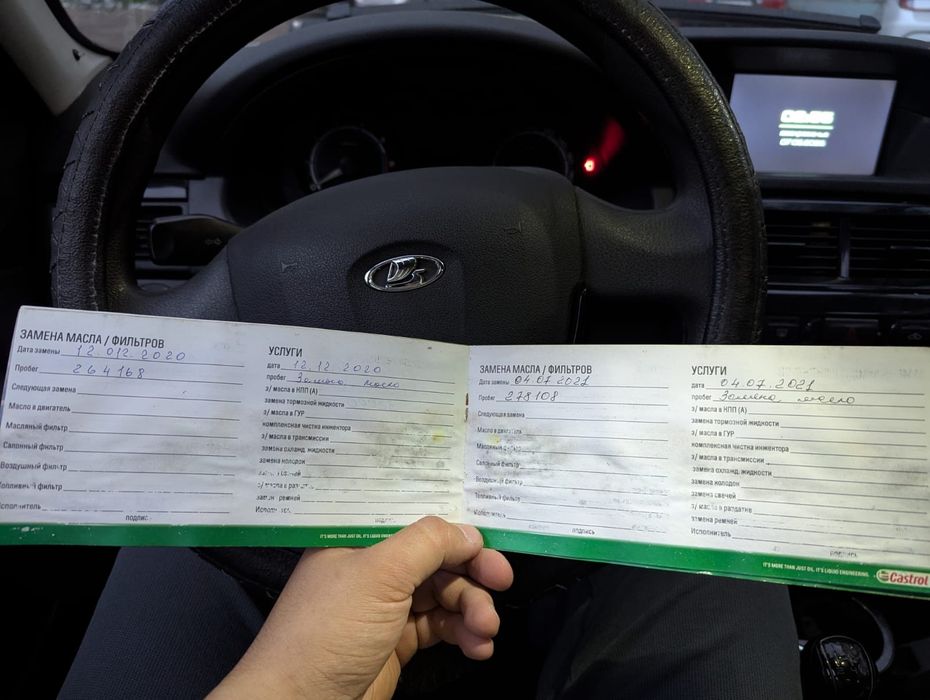 ЗАМЕНА МАСЛА / ФИЛЬТРОВ
Дата замены 12.012.2020
Пробег 264168
Следующая замена
Масло в двигатель
Масляный фильтр
Салонный фильтр
Воздушный фильтр
Топливный фильтр
Исполнитель
подпись
УСЛУГИ
дата 12.12.2020
пробег Замена масло
з/ масла в КПП (А)
замена тормозной жидкости
з/ масла в ГУР
комплексная чистка инжектора
з/ масла в трансмиссии
замена охланд. жидкости
замена колодок
з/ масла в
замен ремней
IT'S MORE THAN JUST OIL. IT'S LIQUID ENGINEERING.
ЗАМЕНА МАСЛА / ФИЛЬТРОВ
Дата замены 04.07.2021
Пробег 278108
Следующая замена
Масло в двигатель
Масляный фильтр
Салонный фильтр
Воздушный фильтр
Топливный фильтр
Исполнитель
подпись
УСЛУГИ
дата 04.07.2021
пробег Замена масло
з/ масла в КПП (А)
замена тормозной жидкости
з/ масла в ГУР
комплексная чистка инжектора
з/ масла в трансмиссии
замена охланд. жидкости
замена колодок
замена свечей
з/ масла в раздатке
замена ремней
Исполнитель
подпись
IT'S MORE THAN JUST OIL. IT'S LIQUID ENGINEERING.
Castrol